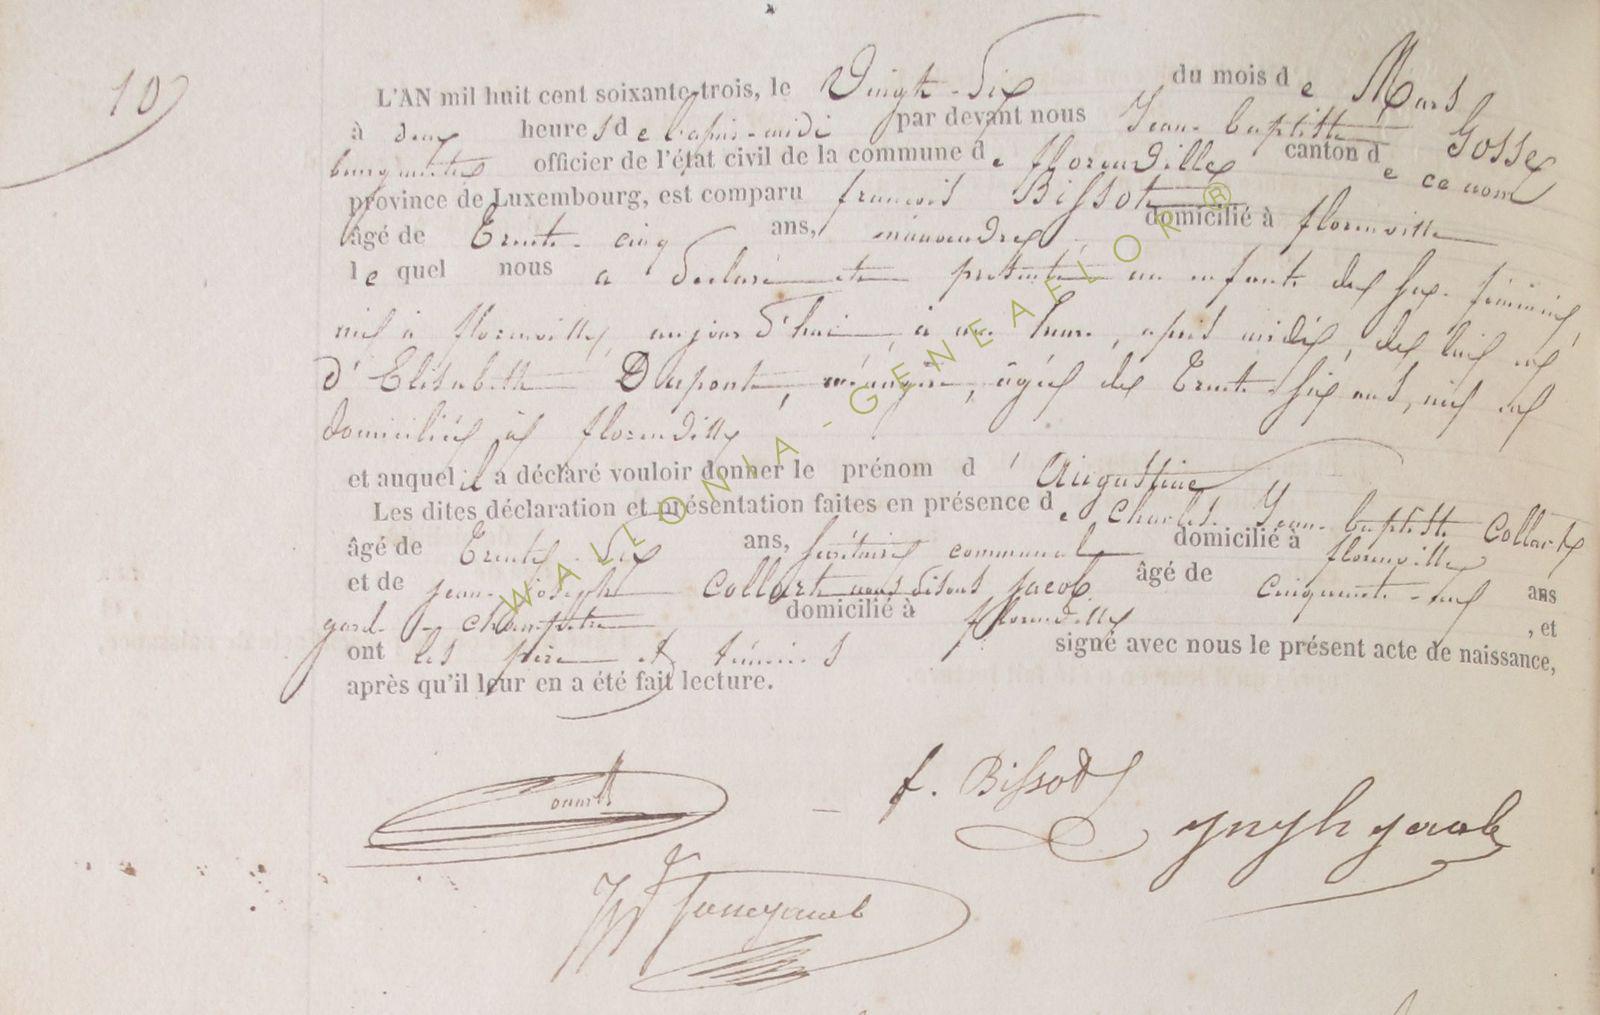 10
L'AN mil huit cent soixante-trois, le Vingt-Six du mois de Mars
à deux heures de l'après-midi par devant nous Jean-baptiste Gosse
bourgmestre officier de l'état civil de la commune de florenville canton de ce nom
province de Luxembourg, est comparu françois Bissot
âgé de Trente-cinq ans, manoeuvre domicilié à florenville
lequel nous a déclaré et présenté un enfant de sexe féminin,
né à florenville, aujourd'hui, à une heure, après midi, de lui et
d'Elisabeth Dupont, ménagère, âgée de Trente-six ans, née et
domiciliée à florenville
et auquel il a déclaré vouloir donner le prénom d'Augustine
Les dites déclaration et présentation faites en présence de Charles Jean-baptiste Collart
âgé de Trente-Six ans, secrétaire communal domicilié à florenville
et de jean-joseph Collart nous disons jacob âgé de cinquante-neuf ans
garde champêtre domicilié à florenville, et
ont les père et témoins signé avec nous le présent acte de naissance,
après qu'il leur en a été fait lecture.
f. Bissot
jacob
WALLONIA-GENEAFLOR ®